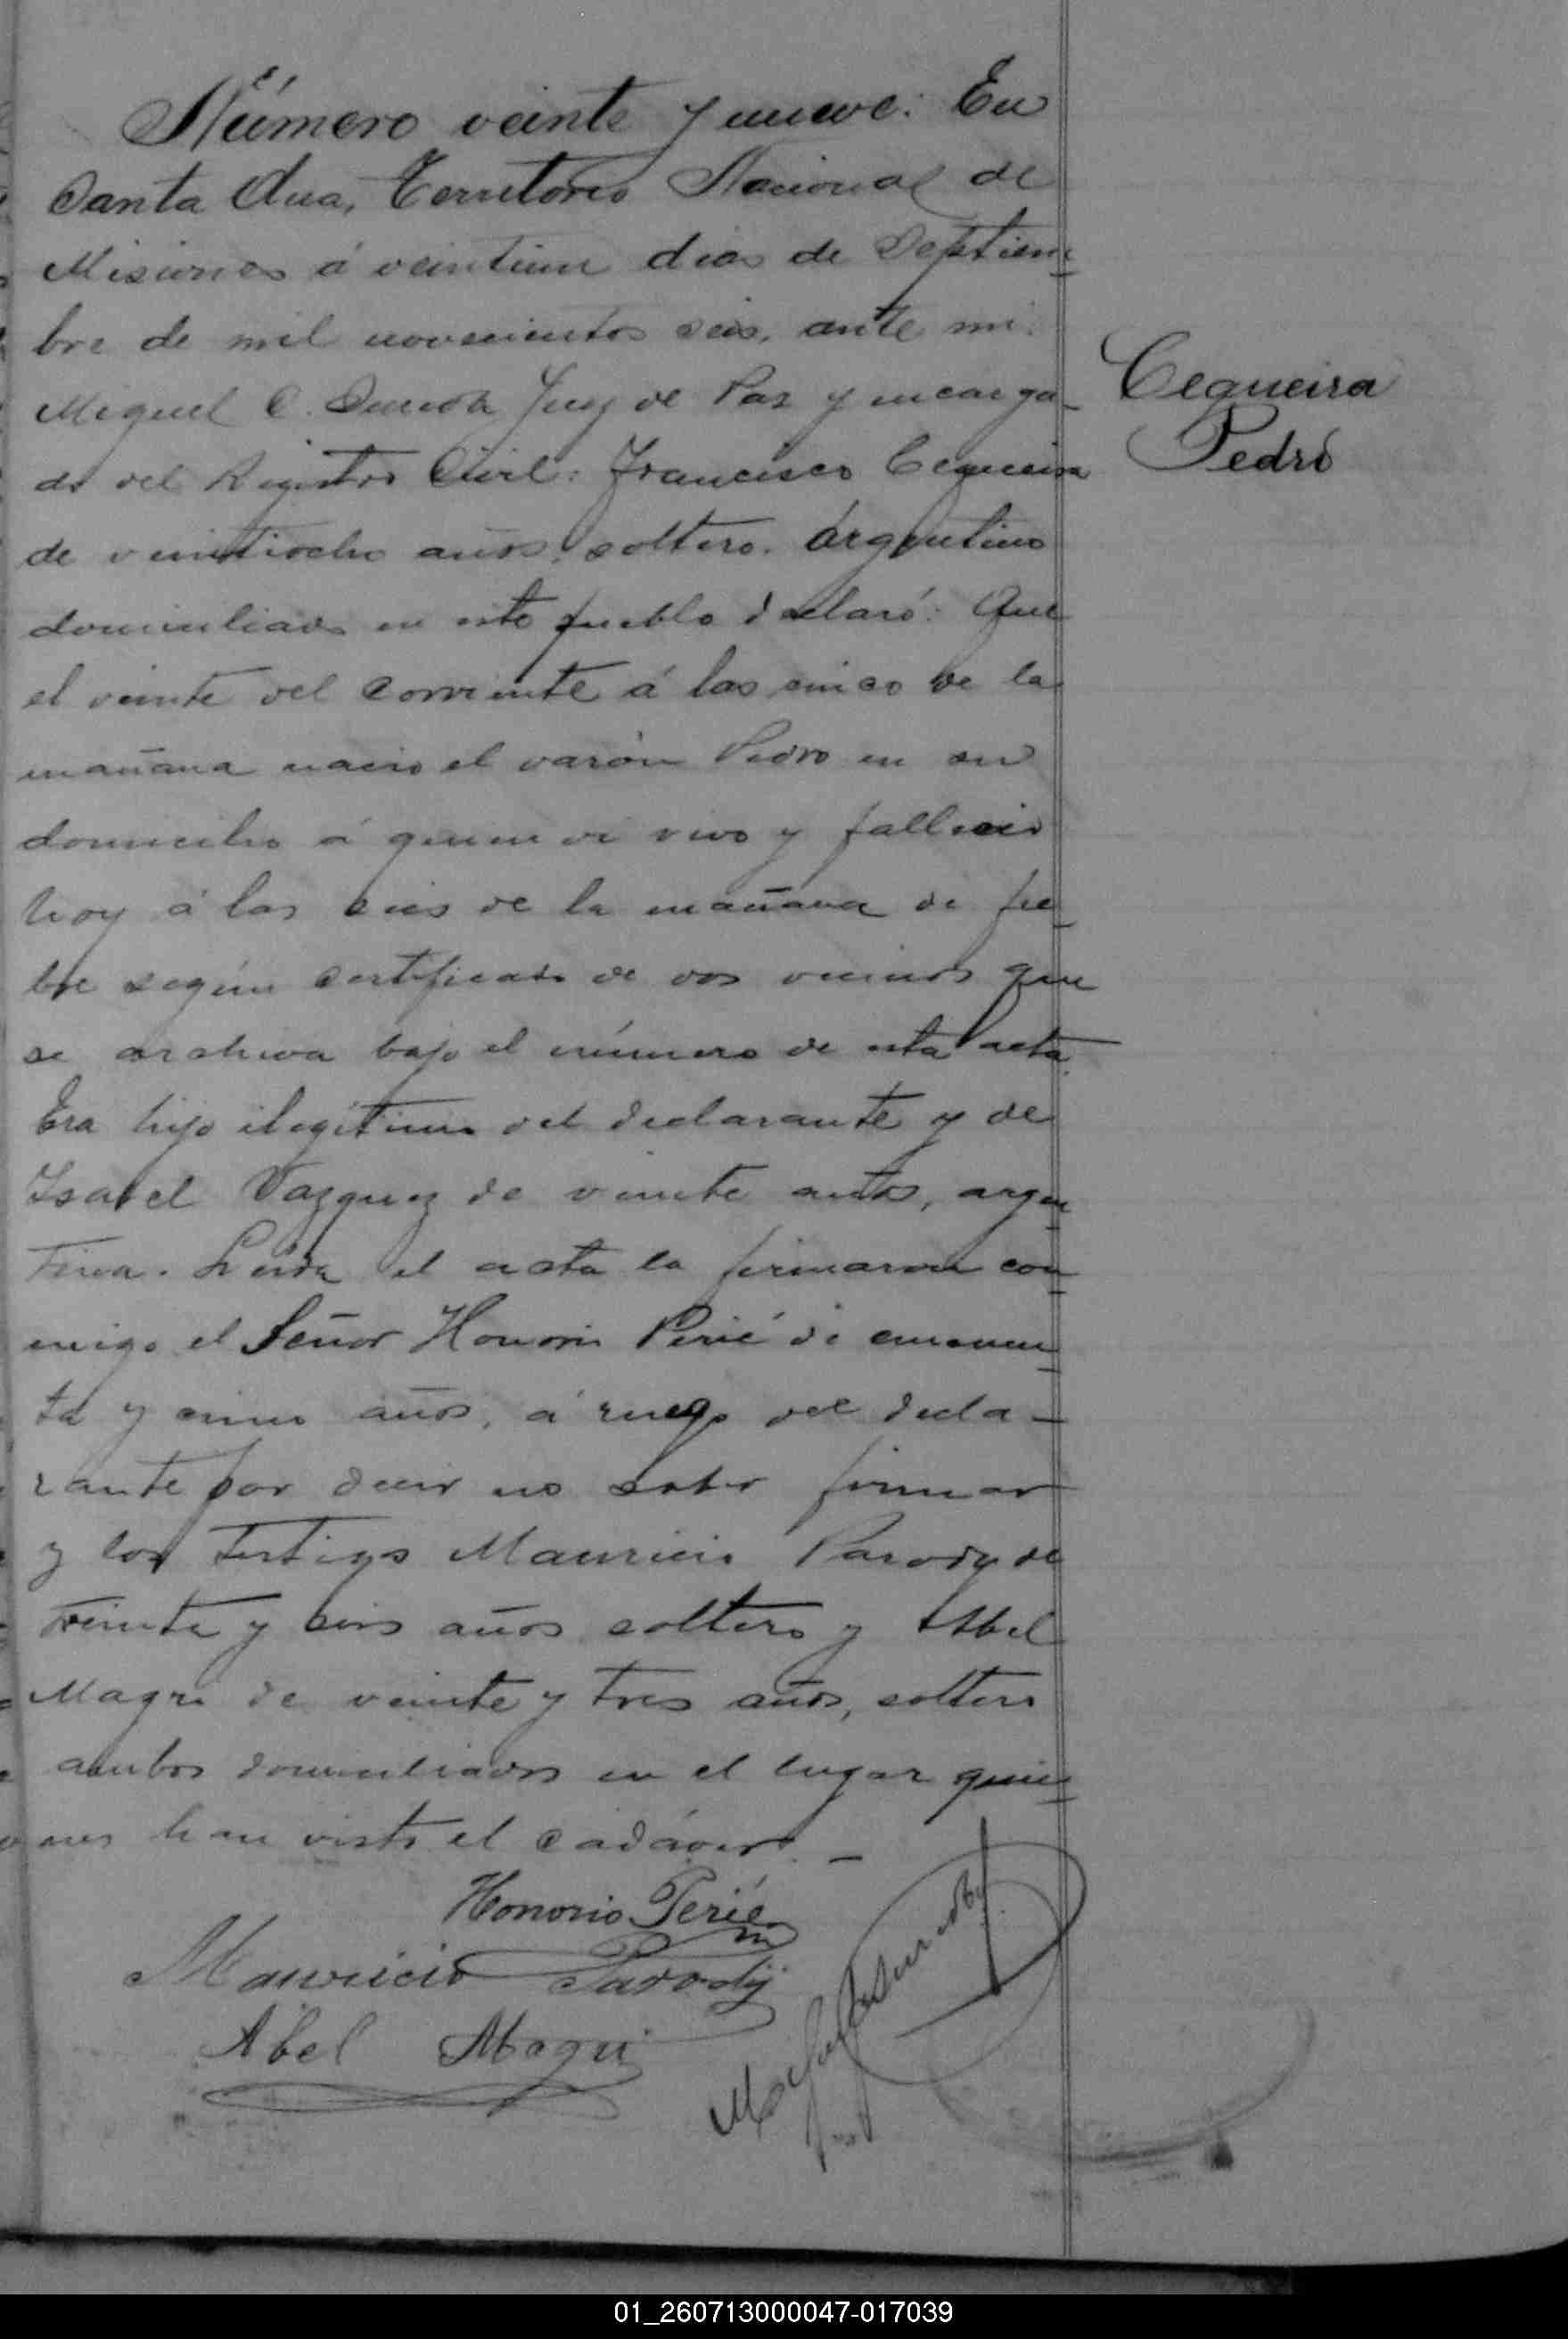 Número veinte y nueve: En
Santa Ana, Territorio Nacional de
Misiones á veintiun dias de Septiem
bre de mil novecientos seis, ante mi:
Miguel C. Juez de Paz y encarga-
do del Registro Civil: Francisco Cequeira
de veintiocho años, soltero, argentino
domiciliado en este pueblo declaró: Que
el veinte del corriente á las cinco de la
mañana nacio el varón Pedro en su
domicilio á quien vi vivo y fallecio
hoy á las seis de la mañana de fie
bre según certificado de dos vecinos que
se archiva bajo el número de esta acta.
Era hijo ilegitimo del declarante y de
Isabel Vazquez de veinte años, argen
tina. Leida el acta la firmaron con
migo el Señor Honorio Perié de cincuen
ta y cinco años, á ruego del decla-
rante por decir no saber firmar
y los testigos Mauricio Parody de
veinte y seis años soltero y Abel
Magri de veinte y tres años, soltero
ambos domiciliados en el lugar quie
nes han visto el cadáver. -
Cequeira
Pedro
Honorio Perié
Mauricio Parody
Abel Magri
01_260713000047-017039